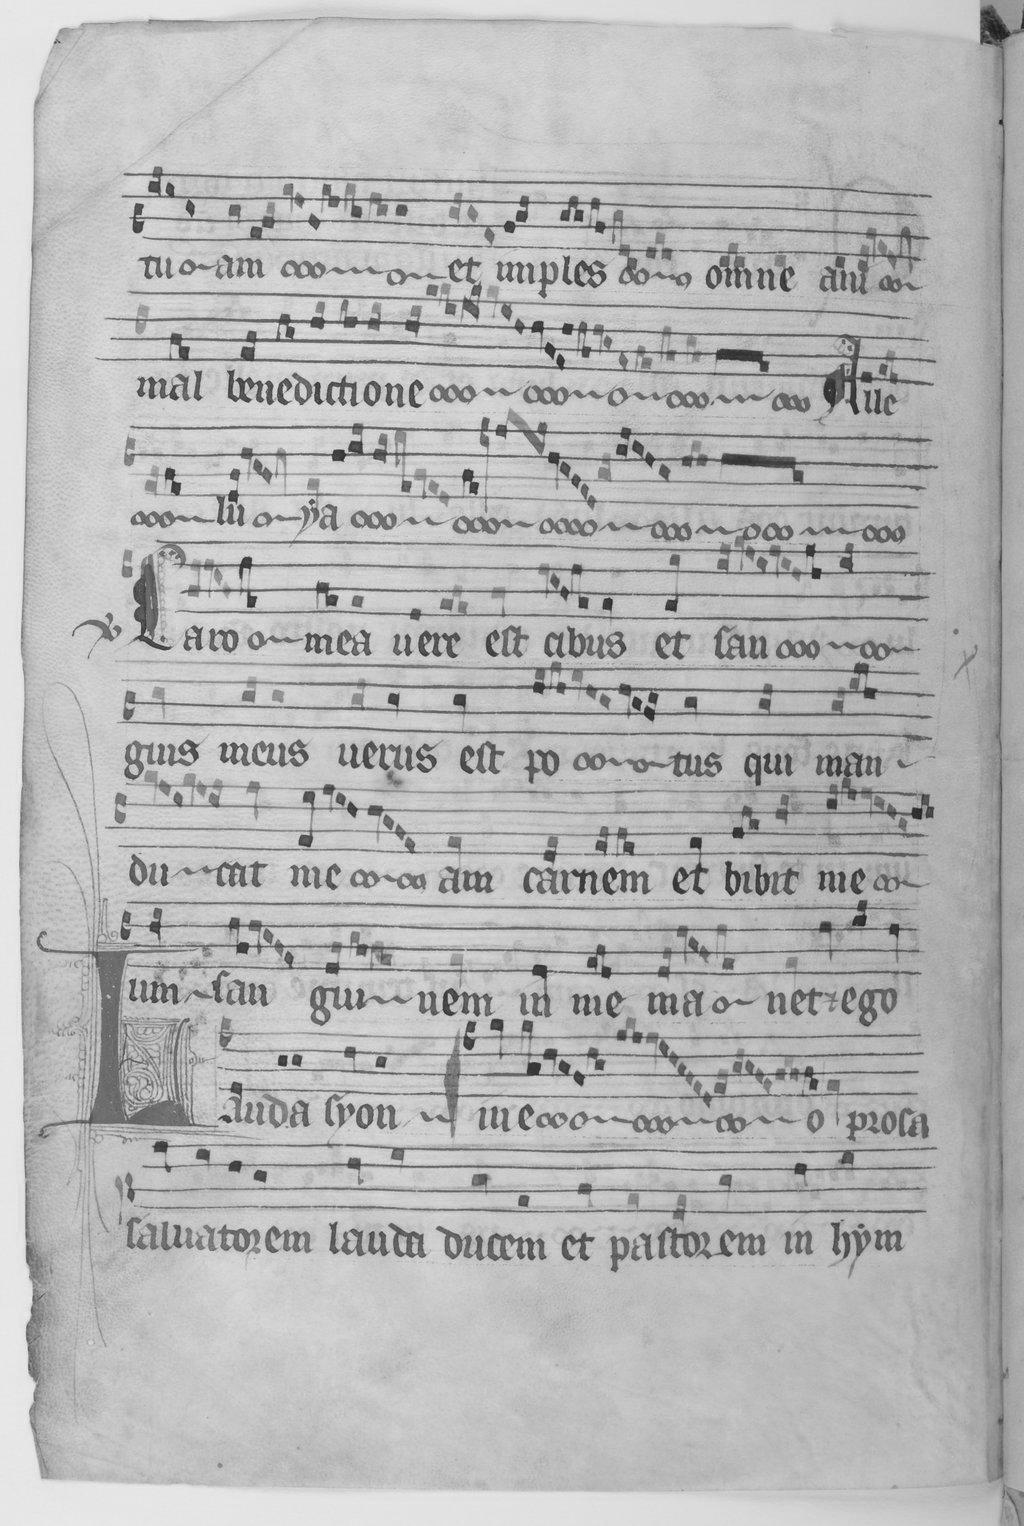 tu am et imples omne ani
mal benedictione Alle
lu ya
℣ Caro mea uere est cibus et san
guis meus uerus est po tus qui man
du cat me am carnem et bibit me
um san gui nem in me ma net ⁊ ego
Lauda syon in eo prosa
saluatorem lauda ducem et pastorem in hym